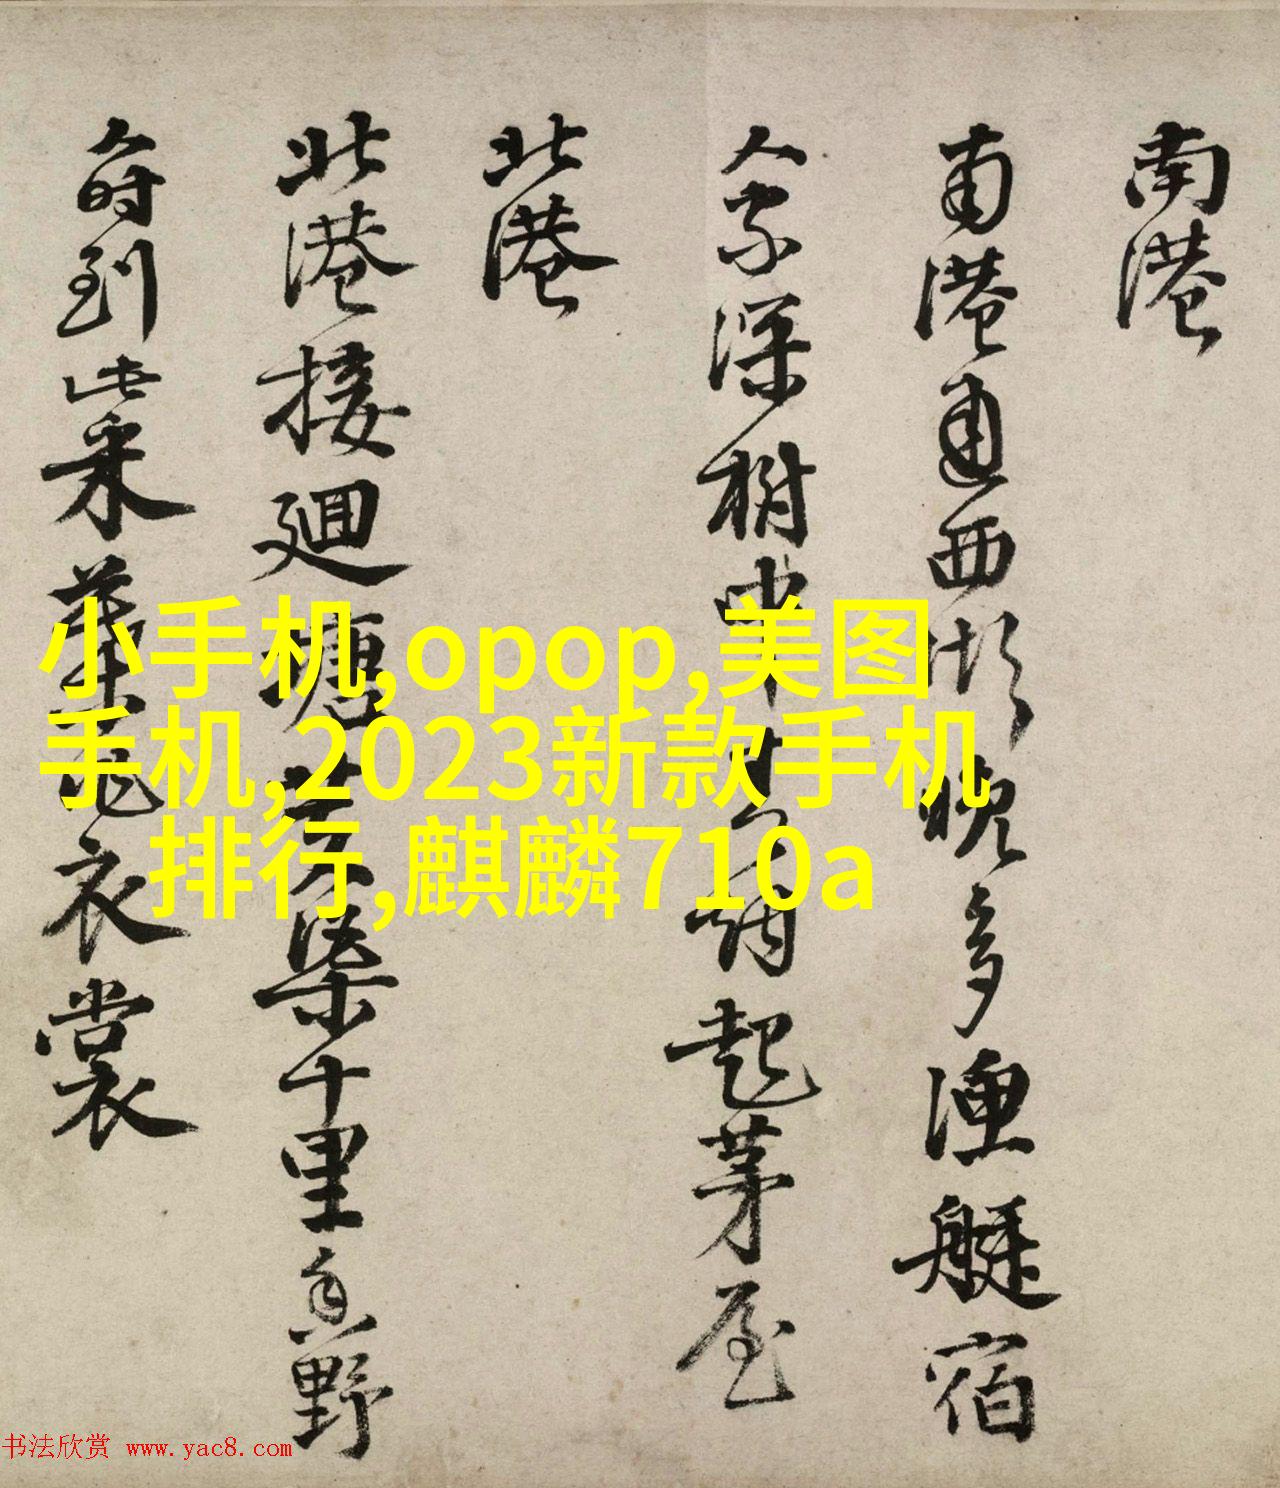 南港
南港通西湖晚多漁艇宿
人家深樹中起茅屋
北港
北港接廻塘渠十里香野
人時到此采衣裳
小手机,opop,美图
手机,2023新款手机
排行,麒麟710a
书法欣赏 www.yac8.com